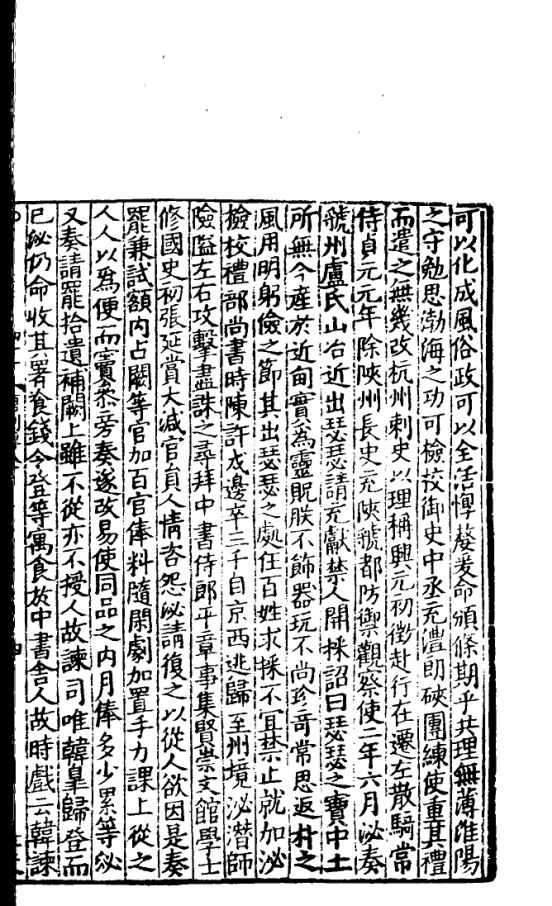 可以化成風俗政可以全活惸嫠爰命頒條期乎共理無薄淮陽
之守勉思渤海之功可檢挍御史中丞充澧朗硤團練使重其禮
而遣之無幾改杭州刺史以理稱興元初徵赴行在遷左散騎常
侍貞元元年除陝州長史充陝虢都防禦觀察使二年六月泌奏
虢州盧氏山冶近出瑟瑟請充獻禁人開採詔曰瑟瑟之寶中土
所無今産於近甸實爲靈貺朕不飾器玩不尚珍竒常思返朴之
風用明躬儉之節其出瑟瑟之處任百姓求採不宜禁止就加泌
檢校禮部尚書時陳許戍邊卒三千自京西逃歸至州境泌潛師
險隘左右攻擊盡誅之尋拜中書侍郎平章事集賢崇文館學士
修國史初張延賞大減官員人情咨怨泌請復之以從人欲因是奏
罷兼試額内占闕等官加百官俸料隨閑劇加置手力課上從之
人人以爲便而竇參旁奏遂改易使同品之内月俸多少累等泌
又奏請罷拾遺補闕上雖不從亦不授人故諫司唯韓臯歸登而
已泌仍命收其署飡錢令登等寓食於中書舍人故時戲云韓諫